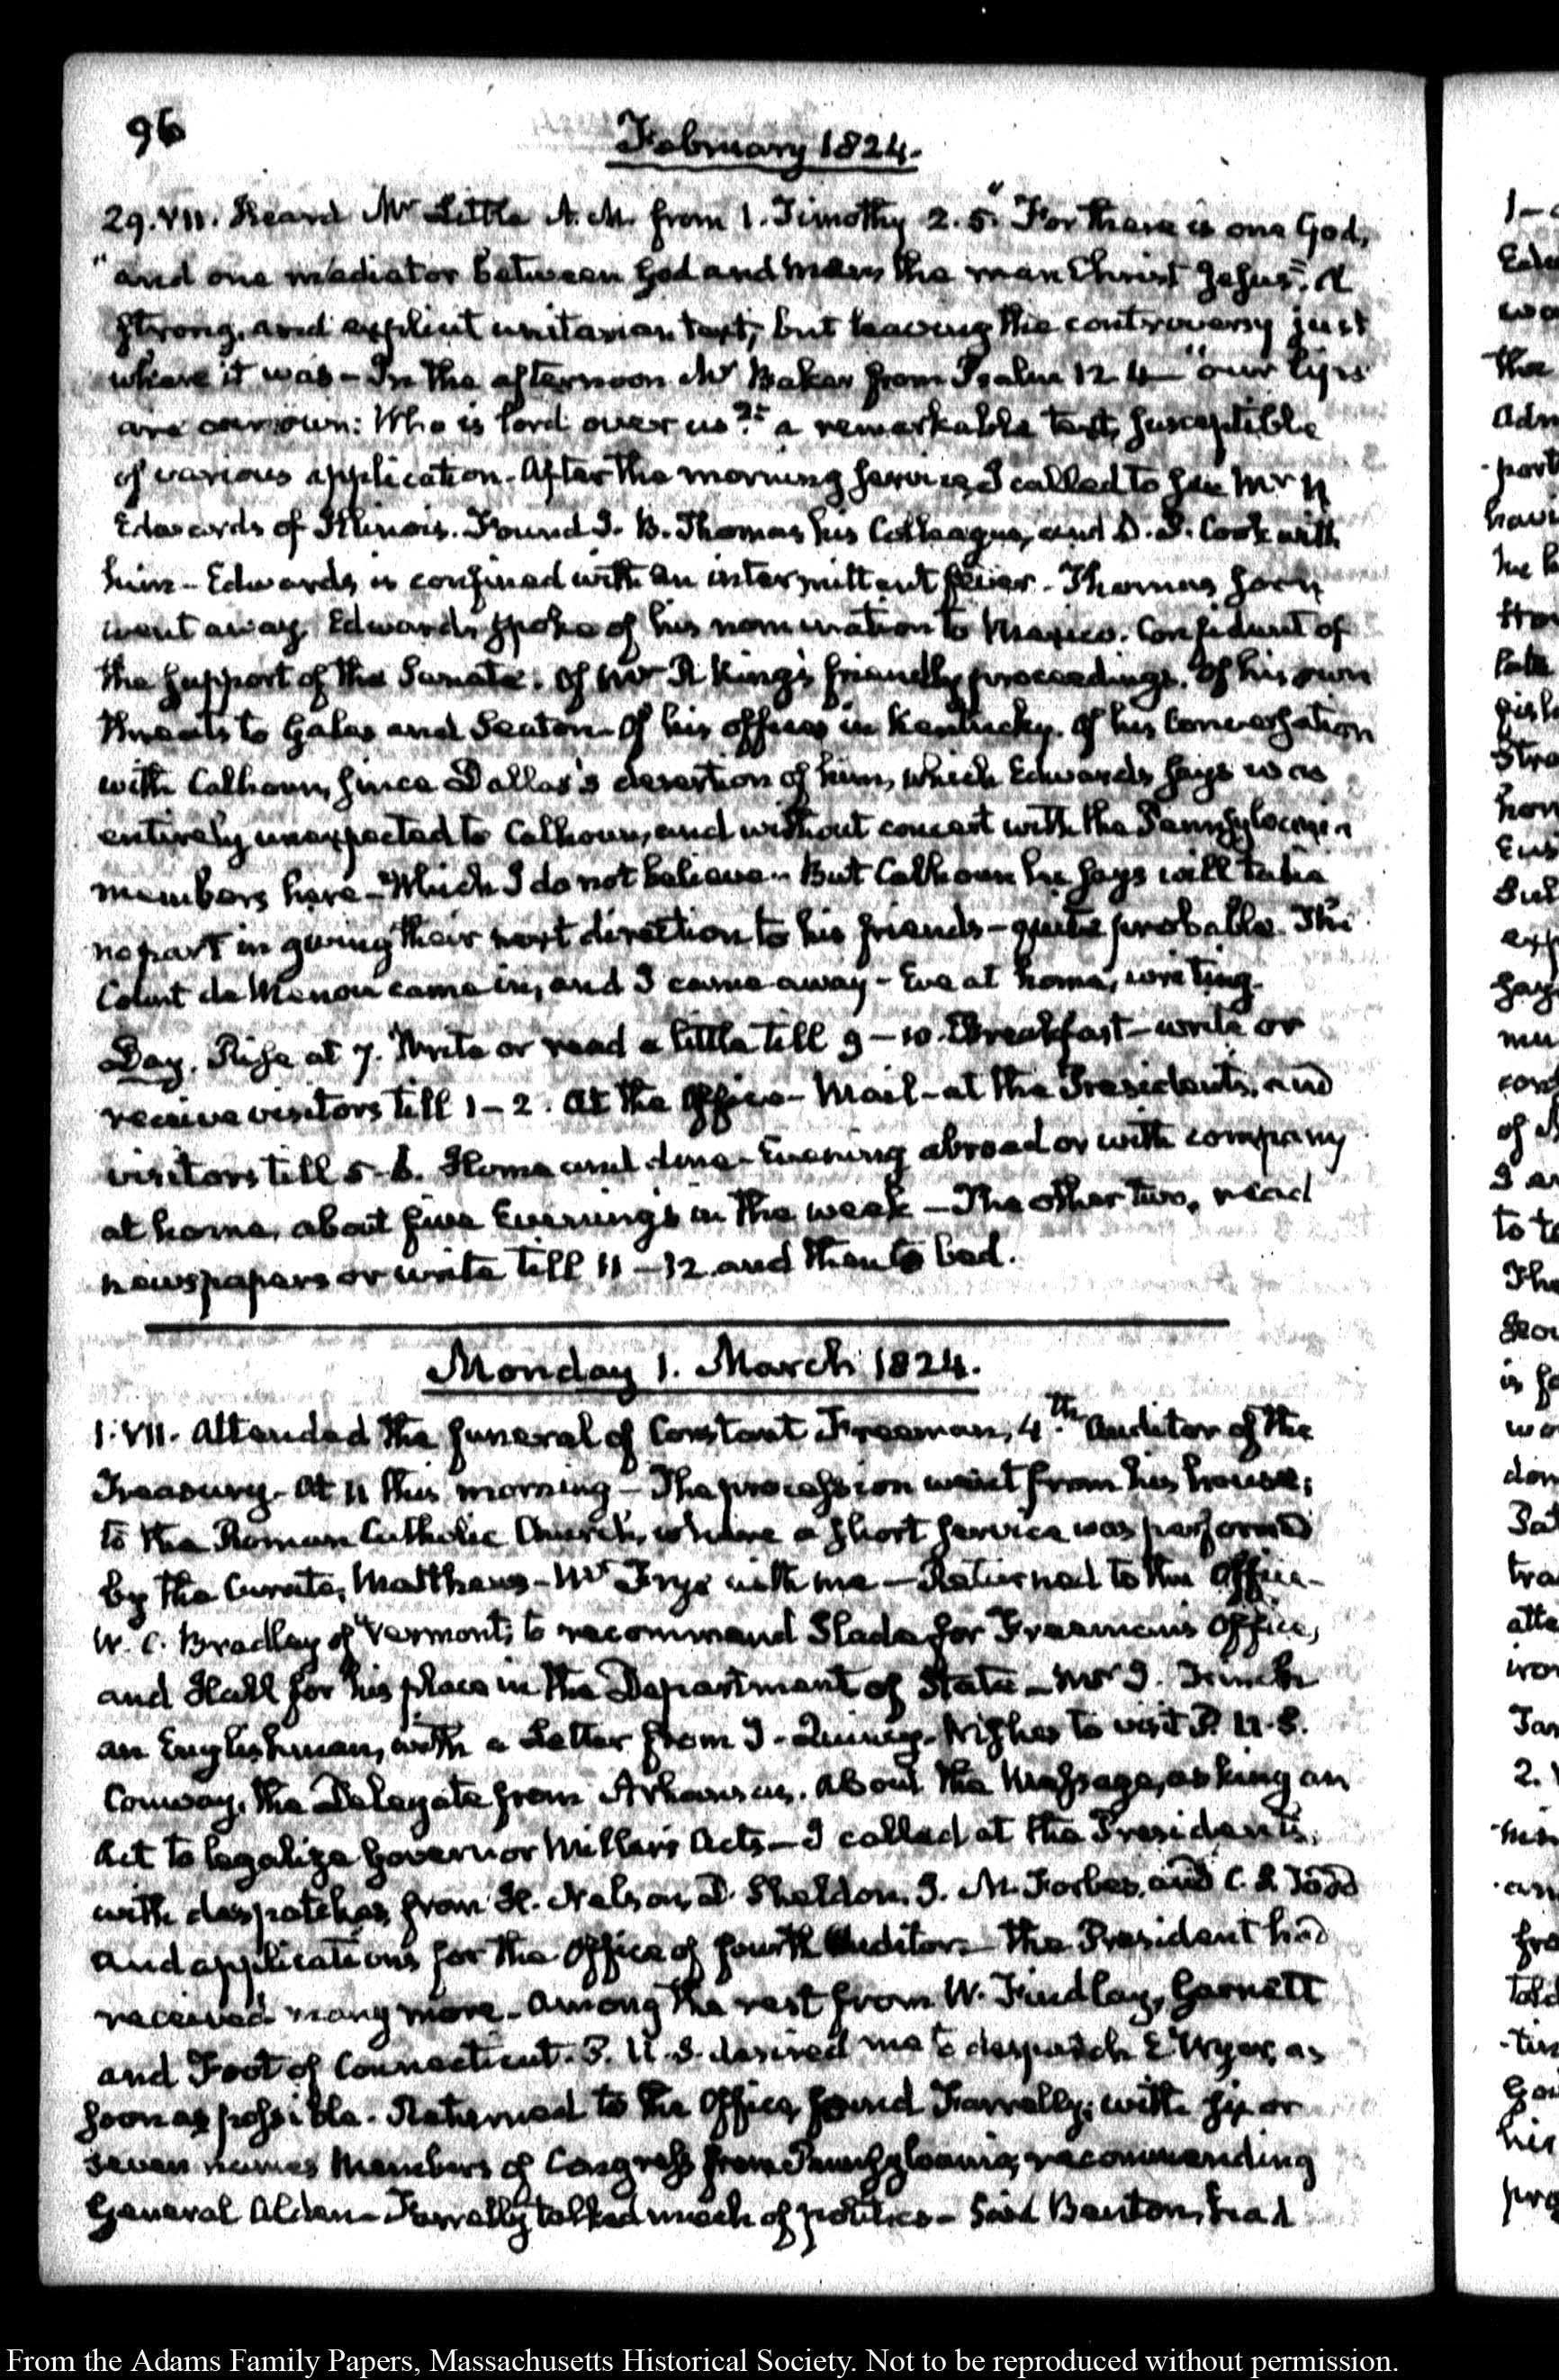 96
February 1824.
29. VII. Heard Mr Little A.M. from 1. Timothy 2. 5. "For there is one God,
"and one mediator between God and men, the man Christ Jesus". A
strong, and explicit unitarian text, but leaving the controversy just
where it was - In the afternoon Mr Baker from Psalm 12 4 "our lips
are our own: Who is lord over us?" a remarkable text, susceptible
of various application. After the morning service, I called to see Mr N
Edwards of Illinois. Found J. B. Thomas his Colleague, and D. P. Cook with
him - Edwards is confined with an intermittent fever. Thomas soon
went away. Edwards spoke of his nomination to Mexico. Confident of
the support of the Senate. Of Mr R King's friendly proceedings. Of his own
threats to Gales and Seaton. Of his offices in Kentucky. Of his Conversation
with Calhoun, since Dallas's desertion of him, which Edwards says was
entirely unexpected to Calhoun, and without concert with the Pennsylvania
members here - Which I do not believe - But Calhoun he says will take
no part in giving their next direction to his friends - quite probable. The
Count de Menou came in, and I came away - Eve at home, writing.
Day. Rise at 7. Write or read a little till 9 - 10. Breakfast - write or
receive visitors till 1 - 2. At the Office - Mail - at the Presidents, and
visitors till 5 - 6. Home and dine - Evening abroad or with company
at home, about five Evenings in the week - The other two, read
newspapers or write till 11 - 12 and then to bed.
Monday 1. March 1824.
1. VII. Attended the funeral of Constant Freeman, 4th Auditor of the
Treasury - At 11 this morning - The procession went from his house;
to the Roman Catholic Church, where a short service was performed
by the Curate, Matthews - Mr Frye with me - Returned to the Office -
W. C. Bradley of Vermont, to recommend Slade for Freeman's Office,
and Hall for his place in the Department of State - Mr J.
an Englishman, with a Letter from J. Quincy. Wishes to visit P. U.S.
Conway, the Delegate from Arkansas, about the Message, asking an
Act to legalize Governor Miller's Acts - I called at the Presidents,
with despatches from H. Nelson, D. Sheldon, J. M. Forbes, and C. S. Todd
and applications for the Office of fourth Auditor - the President had
received many more - Among the rest from W. Findlay, Garnett
and Foot of Connecticut. P. U.S. desired me to despatch E Wyer, as
soon as possible - Returned to the Office, found Farrelly; with six or
seven names Members of Congress from Pennsylvania, recommending
General Alden - Farrelly talked much of politics - Said Benton, had